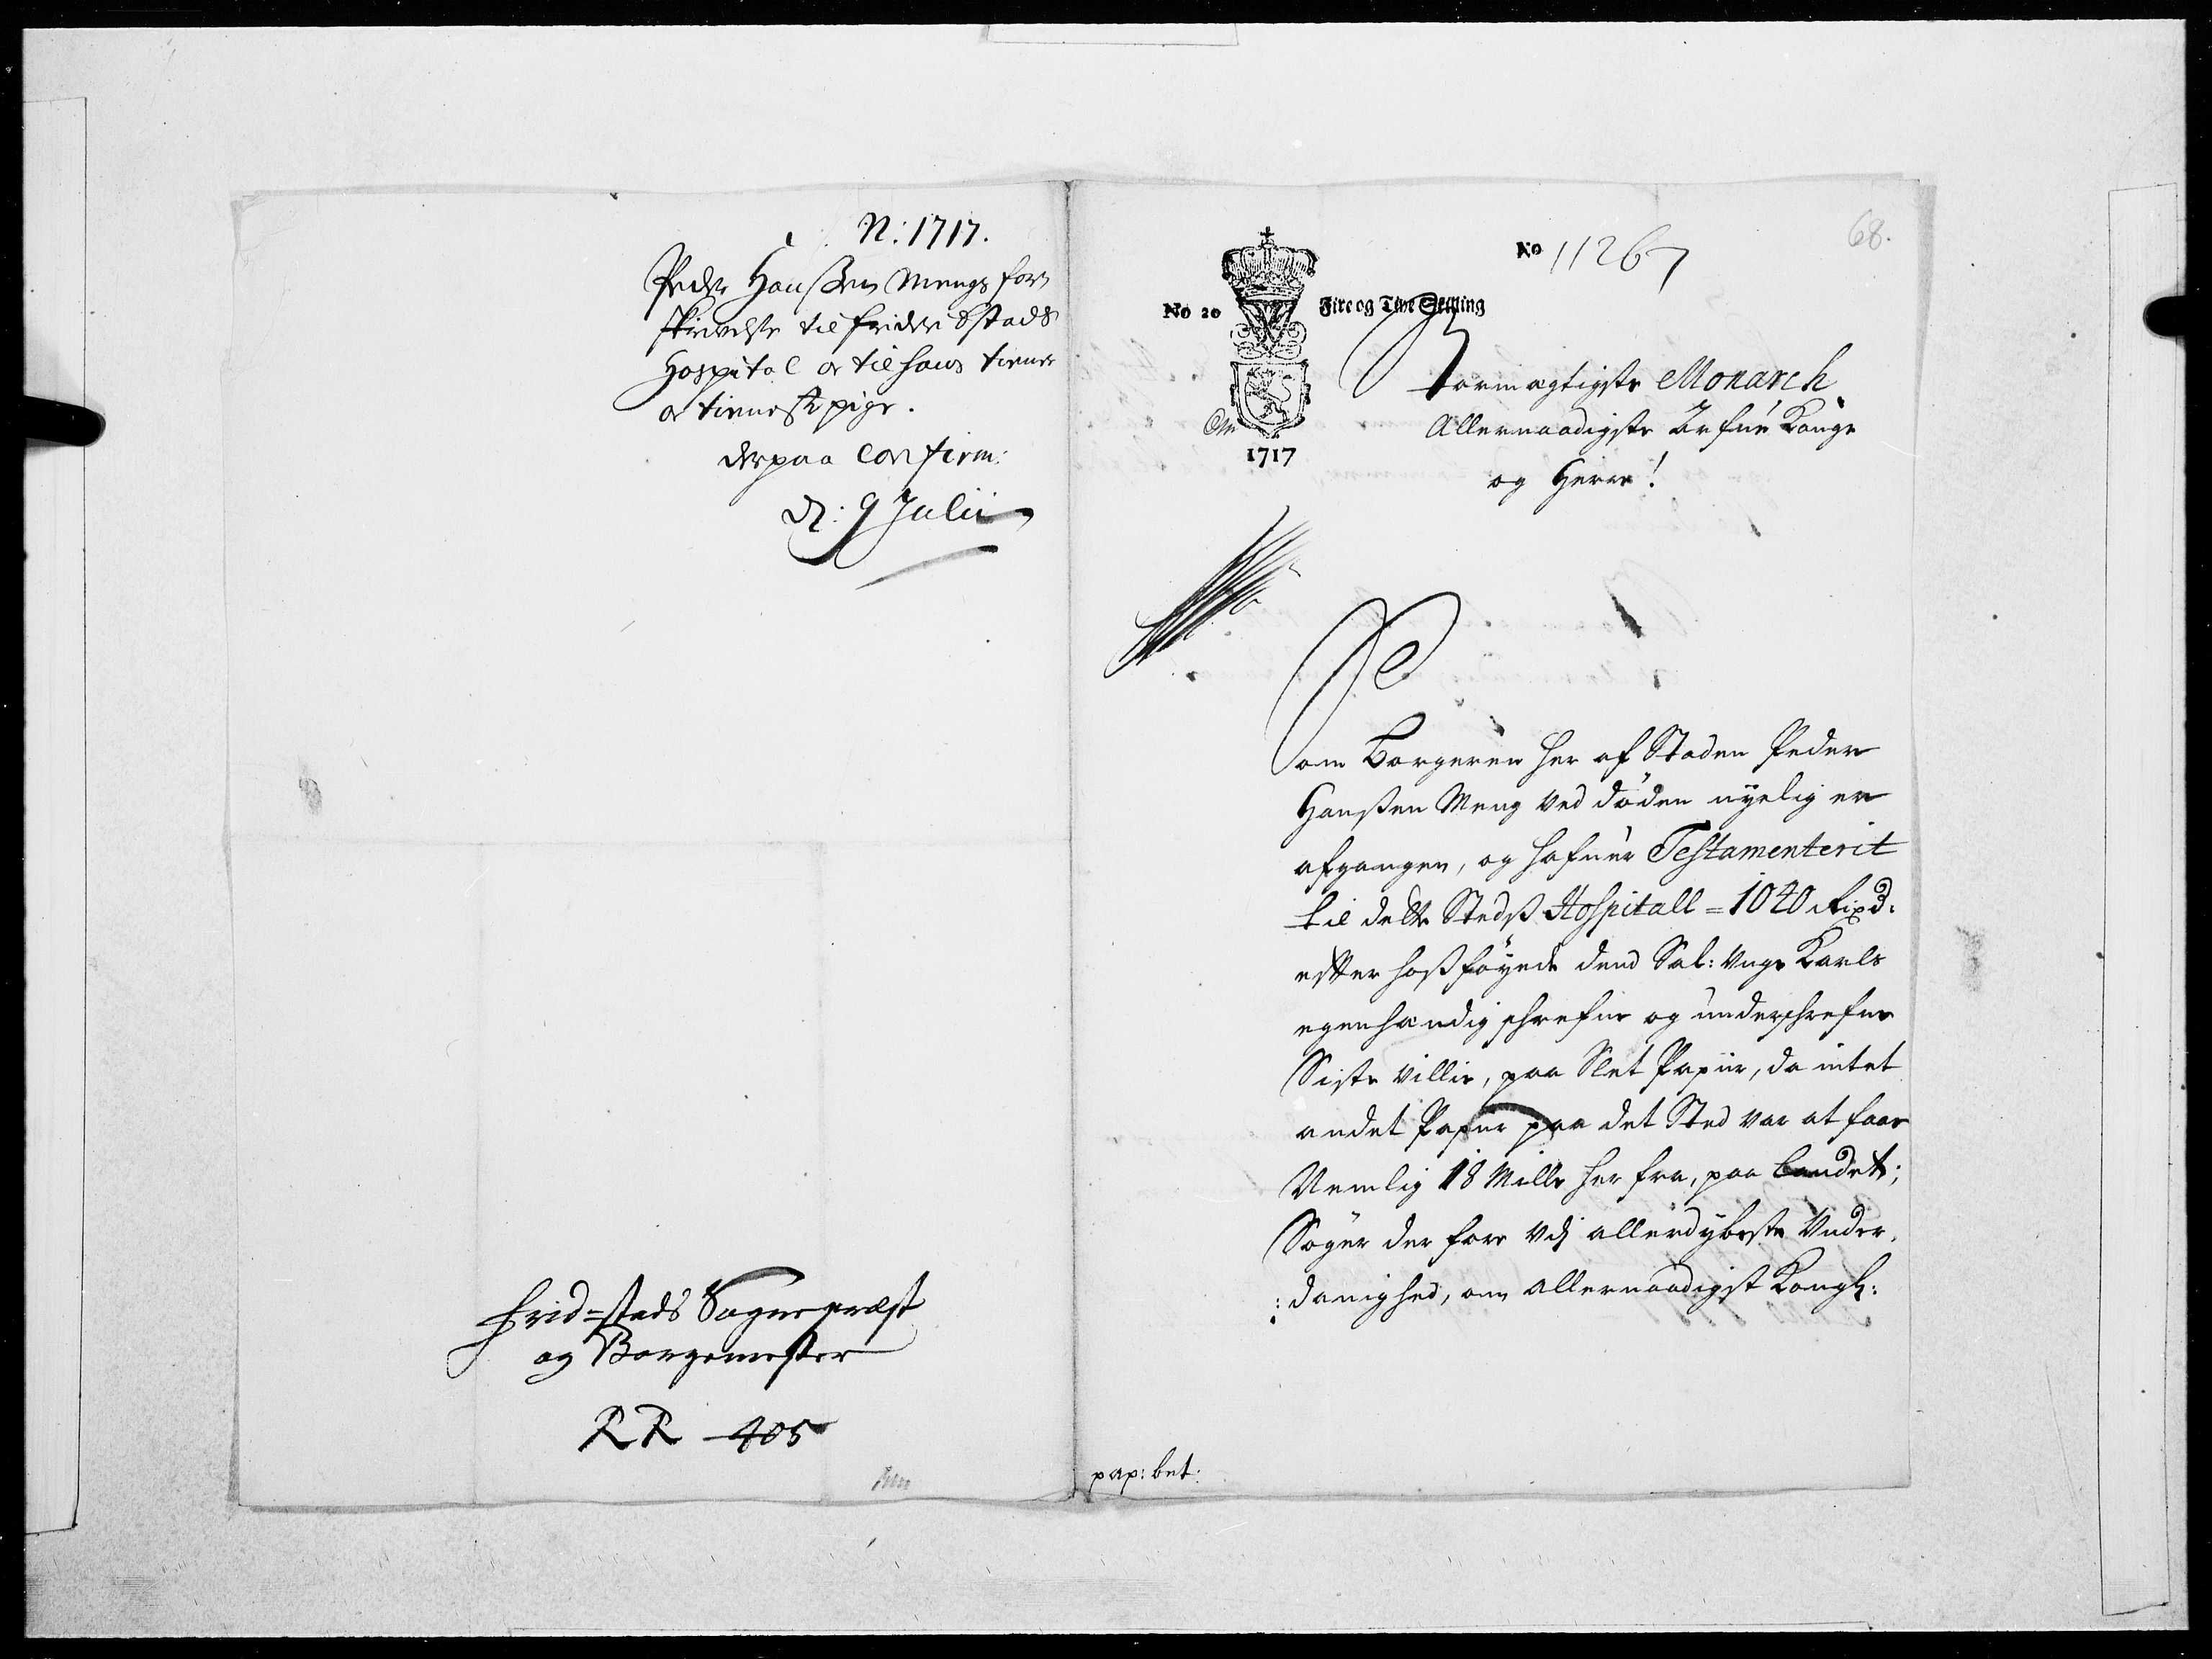 N: 1717.
Peder Hanssen Mengs for
skrivelse til Friderichstads
Hospital oc til hans tiener
oc tieneste pige.
derpaa Confirm:
d: 9 Julii
Frid=stads Sogneprest
og Borgemester
RR 405
68.
No 11267
No 20 Fire og Tive Skilling
1717
Stormægtigste Monarch
Allernaadigste Arfue Konge
og Herre!
Som Borgeren her af Staden Peder
Hanssen Meng ved døden nyelig er
afgangen, og hafuer Testamenterit
til dette Stedsß Hospitall = 1040 Rixd:
efter hoßføyede dend Sal: unge Karls
egenhændig schrefne og underschrefne
Siste villie, paa Slet Papiir, da intet
andet Papiir paa det Sted var at faae
Nemlig 18 Mille her fra, paa landet;
Søger der fore udj allerdybeste Under,
:danighed, om allernaadigst Kongl:
pap: bet: